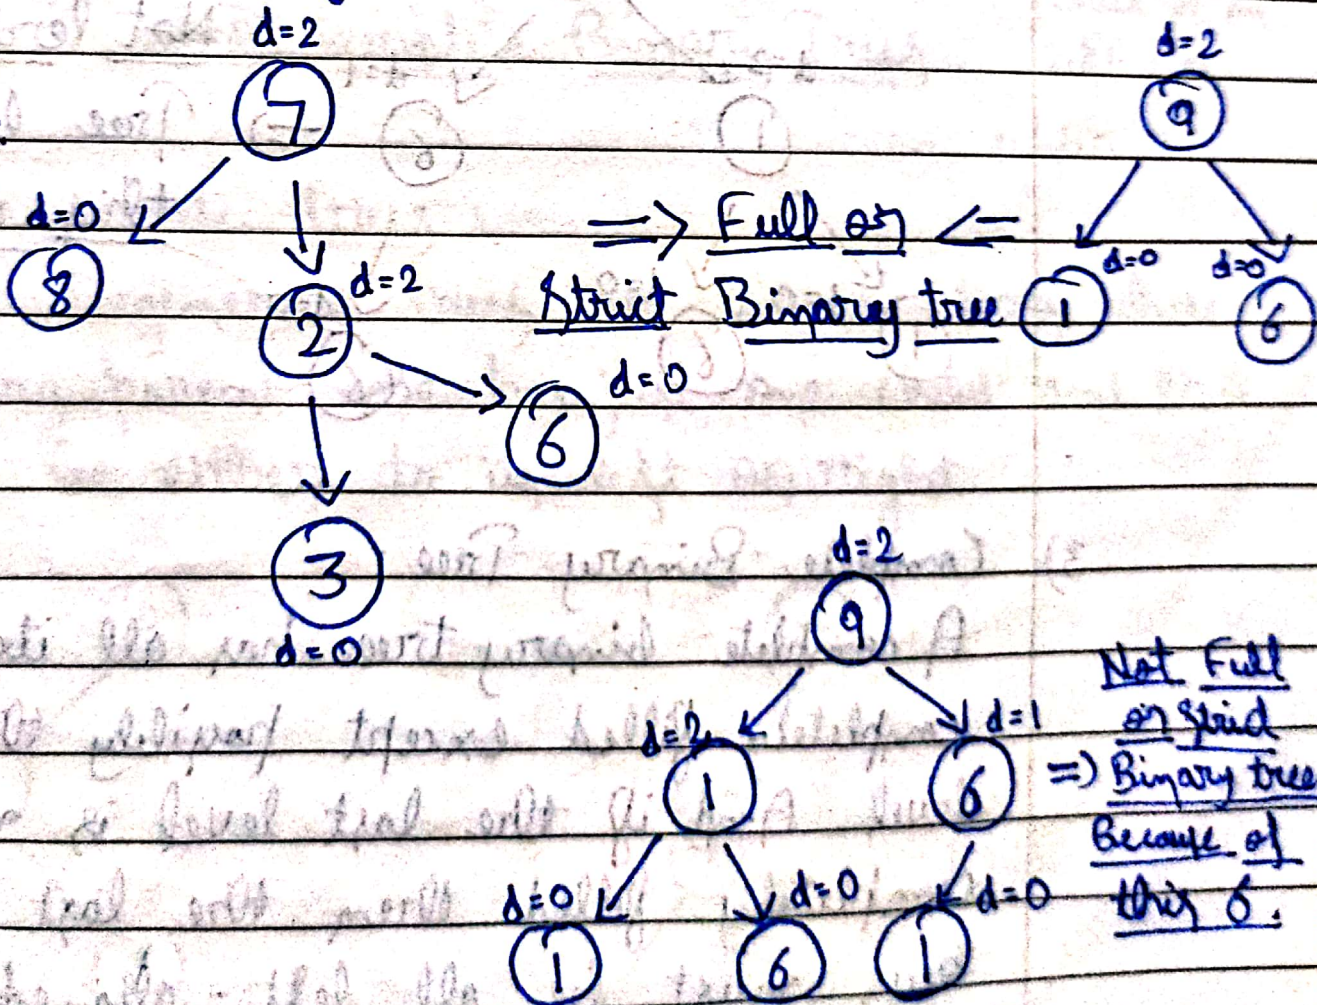 d=2
7
d=0
8
d=2
2
d=0
6
3
d=0
=> Full or <=
Strict Binary tree
d=2
9
d=0
1
d=0
6
d=2
9
d=2
1
d=1
6
d=0
1
d=0
6
d=0
1
Not Full
or Strict
=> Binary tree
Because of
this 6.